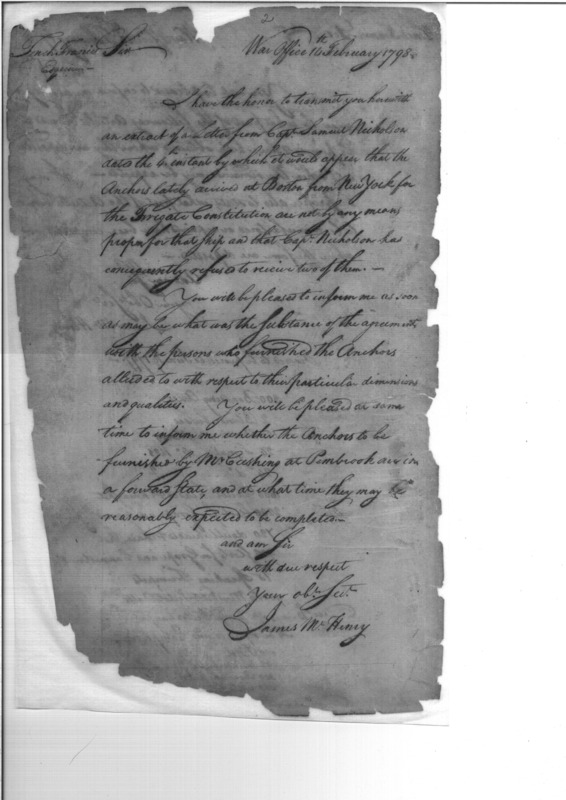 2
Tench Francis Sir War Office 14th February 1798
Esquire
I have the honor to transmit you herewith
an extract of a letter from Capt Samuel Nicholson
dated the 6th instant by which it would appear that the
Anchors lately arrived at Boston from New York for
the Frigate Constitution are not by any means
proper for that ship and that Capt Nicholson has
consequently refused to receive two of them. —
You will be pleased to inform me as soon
as may be what was the substance of the agreement
with the persons who furnished the Anchors
alluded to with respect to their particular dimensions
and qualities. You will be pleased at same
time to inform me whether the Anchors to be
furnished by Mr Cushing at Pembrook are in
a forward State, and at what time they may be
reasonably expected to be completed —
and am Sir
with due respect
Your obt Sevt
James McHenry